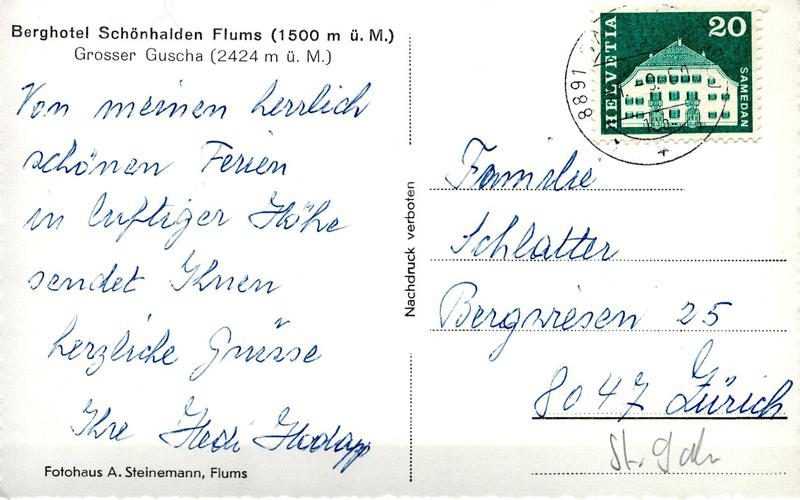 Berghotel Schönhalden Flums (1500 m ü. M.)
Grosser Guscha (2424 m ü. M.)
Von meinen herrlich
schönen Ferien
in luftiger Höhe
sendet Ihnen
herzliche Grüsse
Ihre Hedi Hodapp
Fotohaus A. Steinemann, Flums
Nachdruck verboten
HELVETIA
20
SAMEDAN
8891
Familie
Schlatter
Bergwiesen 25
8047 Zürich
St. Gall